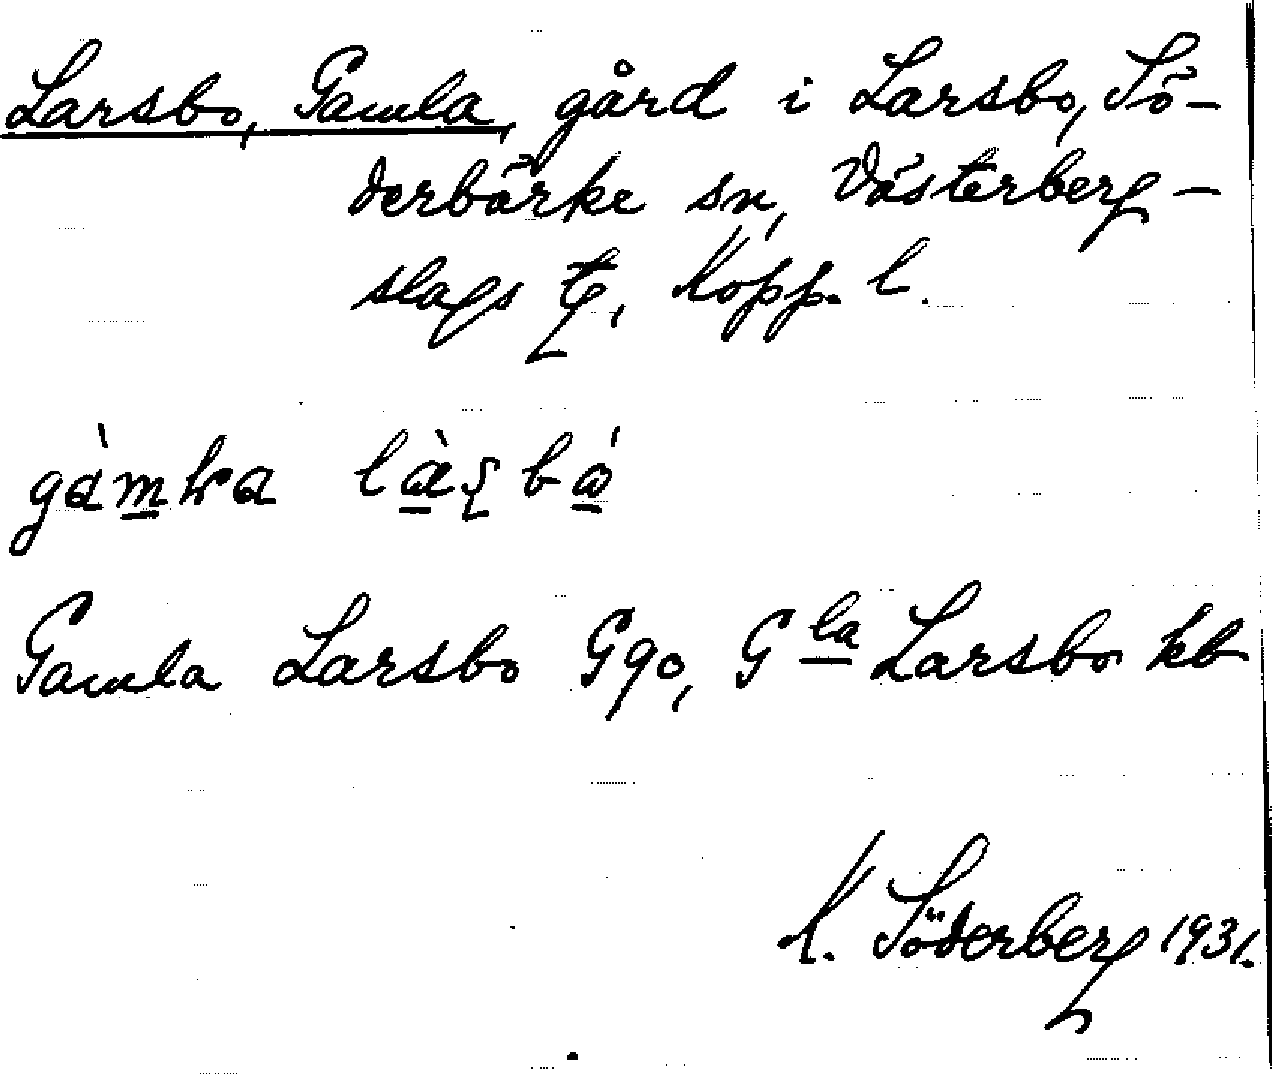 Larsbo, Gamla, gård i Larsbo, Sö-
derbärke sn, Västerberg-
slags tg, Kopp. l.
Gamla Larsbo G90, G la Larsbo kb
K. Söderberg 1931.